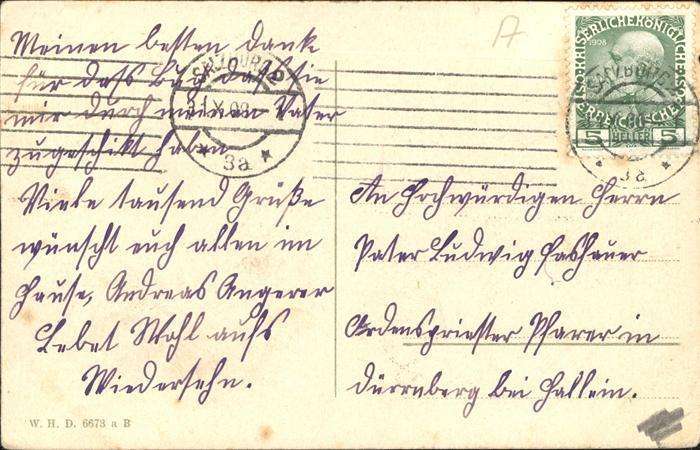 Meinen besten Dank
für dass Buch dass Sie
mir durch meinen Vater
zugeschikt haben
Viele tausend Grüße
wünscht euch allen im
Hause, Andreas Angerer
Lebet Wohl aufs
Wiedersehn.
W. H. D. 6673 a B
A
SALZBURG
1 X 08
* 3a *
KAISERLICHE KÖNIGLICHE
1908
ÖSTERREICHISCHE
5 HELLER 5
SALZBURG
* 3a *
An Hochwürdigen Herrn
Pater Ludwig
Ordenspriester Pfarer in
Dürrnberg bei Hallein.